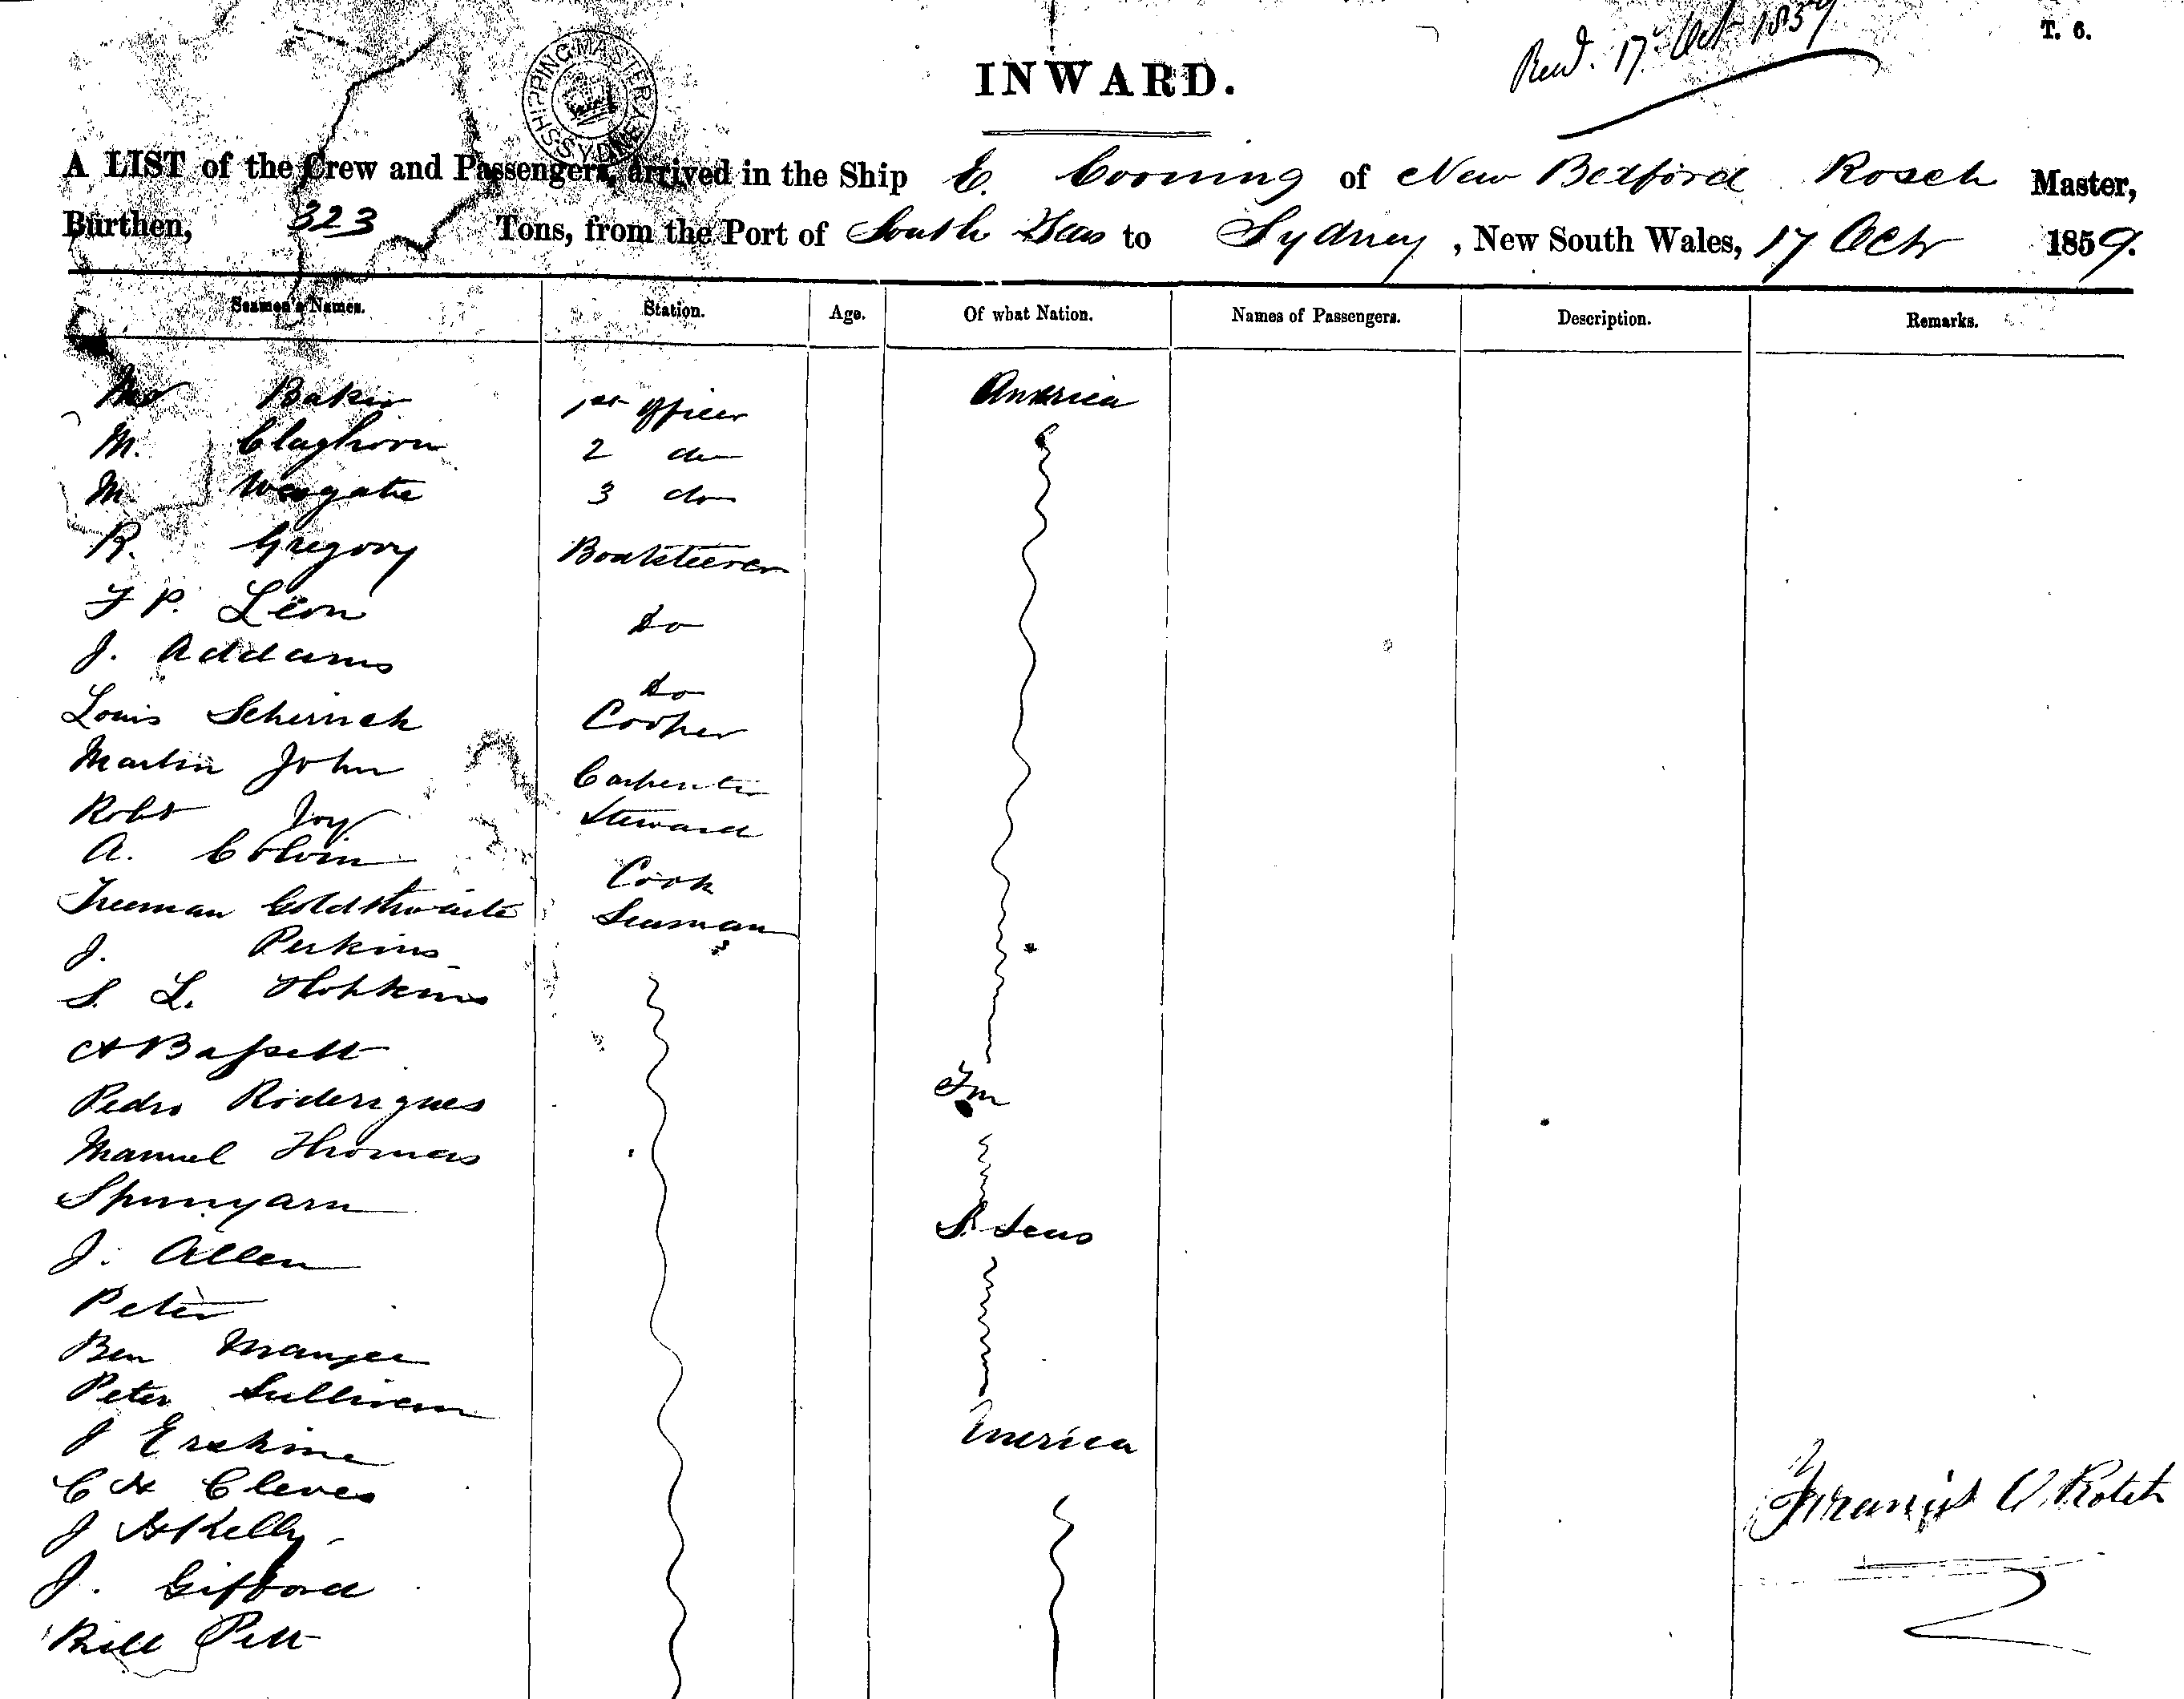 Recd. 17 Oct 1859
T. 6.
SHIPPING MASTER SYDNEY
INWARD.
A LIST of the Crew and Passengers, arrived in the Ship E. Corning of New Bedford Rosch Master,
Burthen, 323 Tons, from the Port of South Seas to Sydney, New South Wales, 17 Octr 1859.
Seamen's Names. Station. Age. Of what Nation. Names of Passengers. Description. Remarks.
Mr Baker 1st Officer America
M. Claghorn 2 do
M. Wesgate 3 do
R. Gregory Boatsteerer
F P. Leon do
J. Addams do
Louis Schernck Cooper
Martin John Carpenter
Robt Joy Steward
A. Colvin Cook
Freeman Goldthwaite Seaman
J. Perkins
S. L. Hopkins
A Bassett
Pedro Roderigues
Manuel Thomas
Spunyarn S. Seas
J. Allen
Peter
Ben
Peter Sullivan
J Erskine America
C H Cleves
J H Kelly
J. Gifford
Bill Pitt
Francis C. Rotch